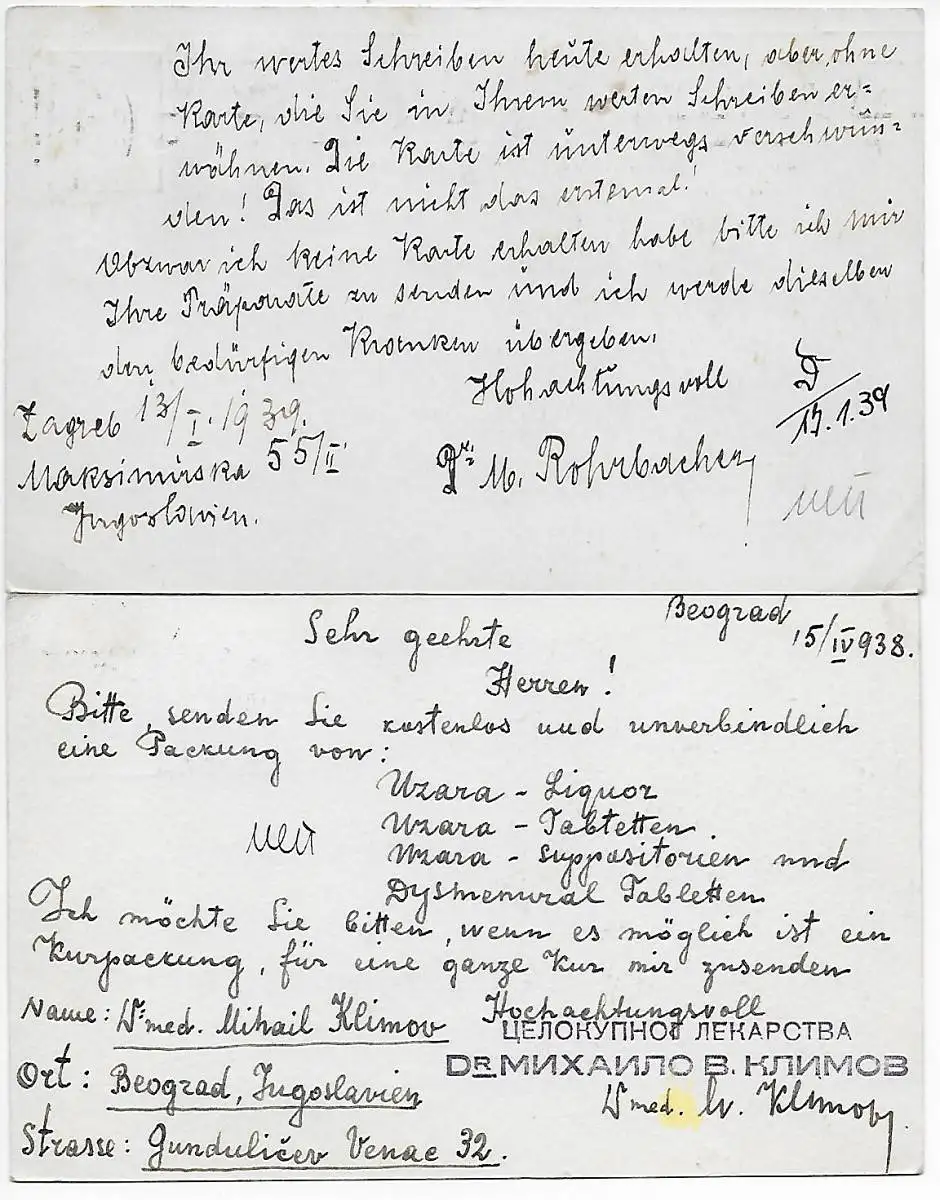 Ihr wertes Schreiben heute erhalten, aber, ohne
Karte, die Sie in Ihrem werten Schreiben er=
wähnen. Die Karte ist unterwegs verschwun=
den! Das ist nicht das erstemal!
Obzwar ich keine Karte erhalten habe bitte ich mir
Ihre Präparate zu senden und ich werde dieselben
den bedürfigen Kranken übergeben.
Hohachtungsvoll
Zagreb 13/I. 1939.
17.1.39
Maksimirska 55/II
Dr. M. Rohrbacher
neu
Jugoslavien.
Beograd
15/IV 938.
Sehr geehrte
Herren!
Bitte, senden Sie kostenlos und unverbindlich
eine Packung von:
Uzara - Liquor
Uzara - Tabtetten.
neu
Uzara - suppositorien und
Dysmenural Tabletten
Ich möchte Sie bitten, wenn es möglich ist ein
Kurpackung, für eine ganze Kur mir zusenden
Name: Dr med. Mihail Klimov
Hochachtungsvoll
ЦЕЛОКУПНОГ ЛЕКАРСТВА
DR. МИХАИЛО В. КЛИМОВ
Ort: Beograd, Jugoslavien
Dr med. M. Klimov
Strasse: Gundulićev Venac 32.